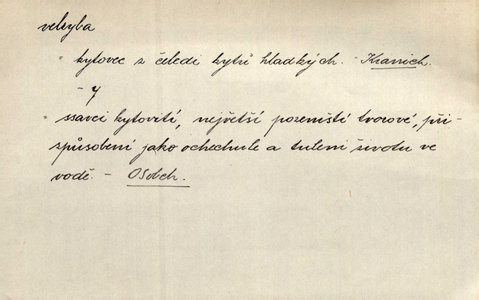 velryba
kytovec z čeledi kytů hladkých. - Kranich.
- y
ssavci kytovití, největší pozemští tvorové, při-
spůsobení jako ochechule a tuleni životu ve
vodě. - OSobch.